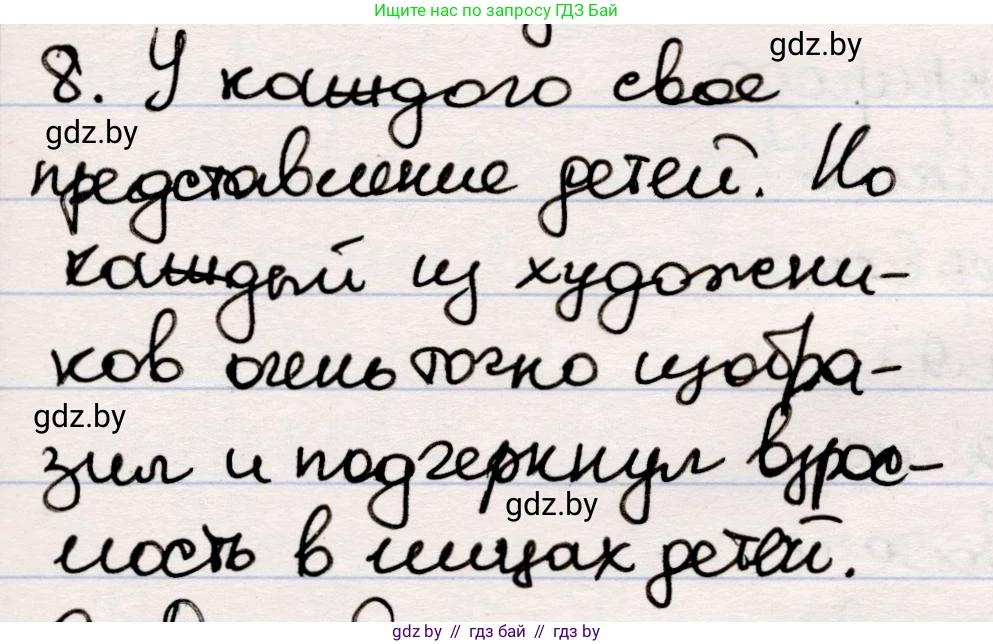 Ищите нас по запросу ГДЗ Бай
gdz.by
8. У каждого свое
gdz.by
представление детей. Но
каждый из художни-
ков очень точно изобра-
gdz.by
зил и подчеркнул взрос-
gdz.by
лость в лицах детей.
gdz.by // гдз бай // гдз by